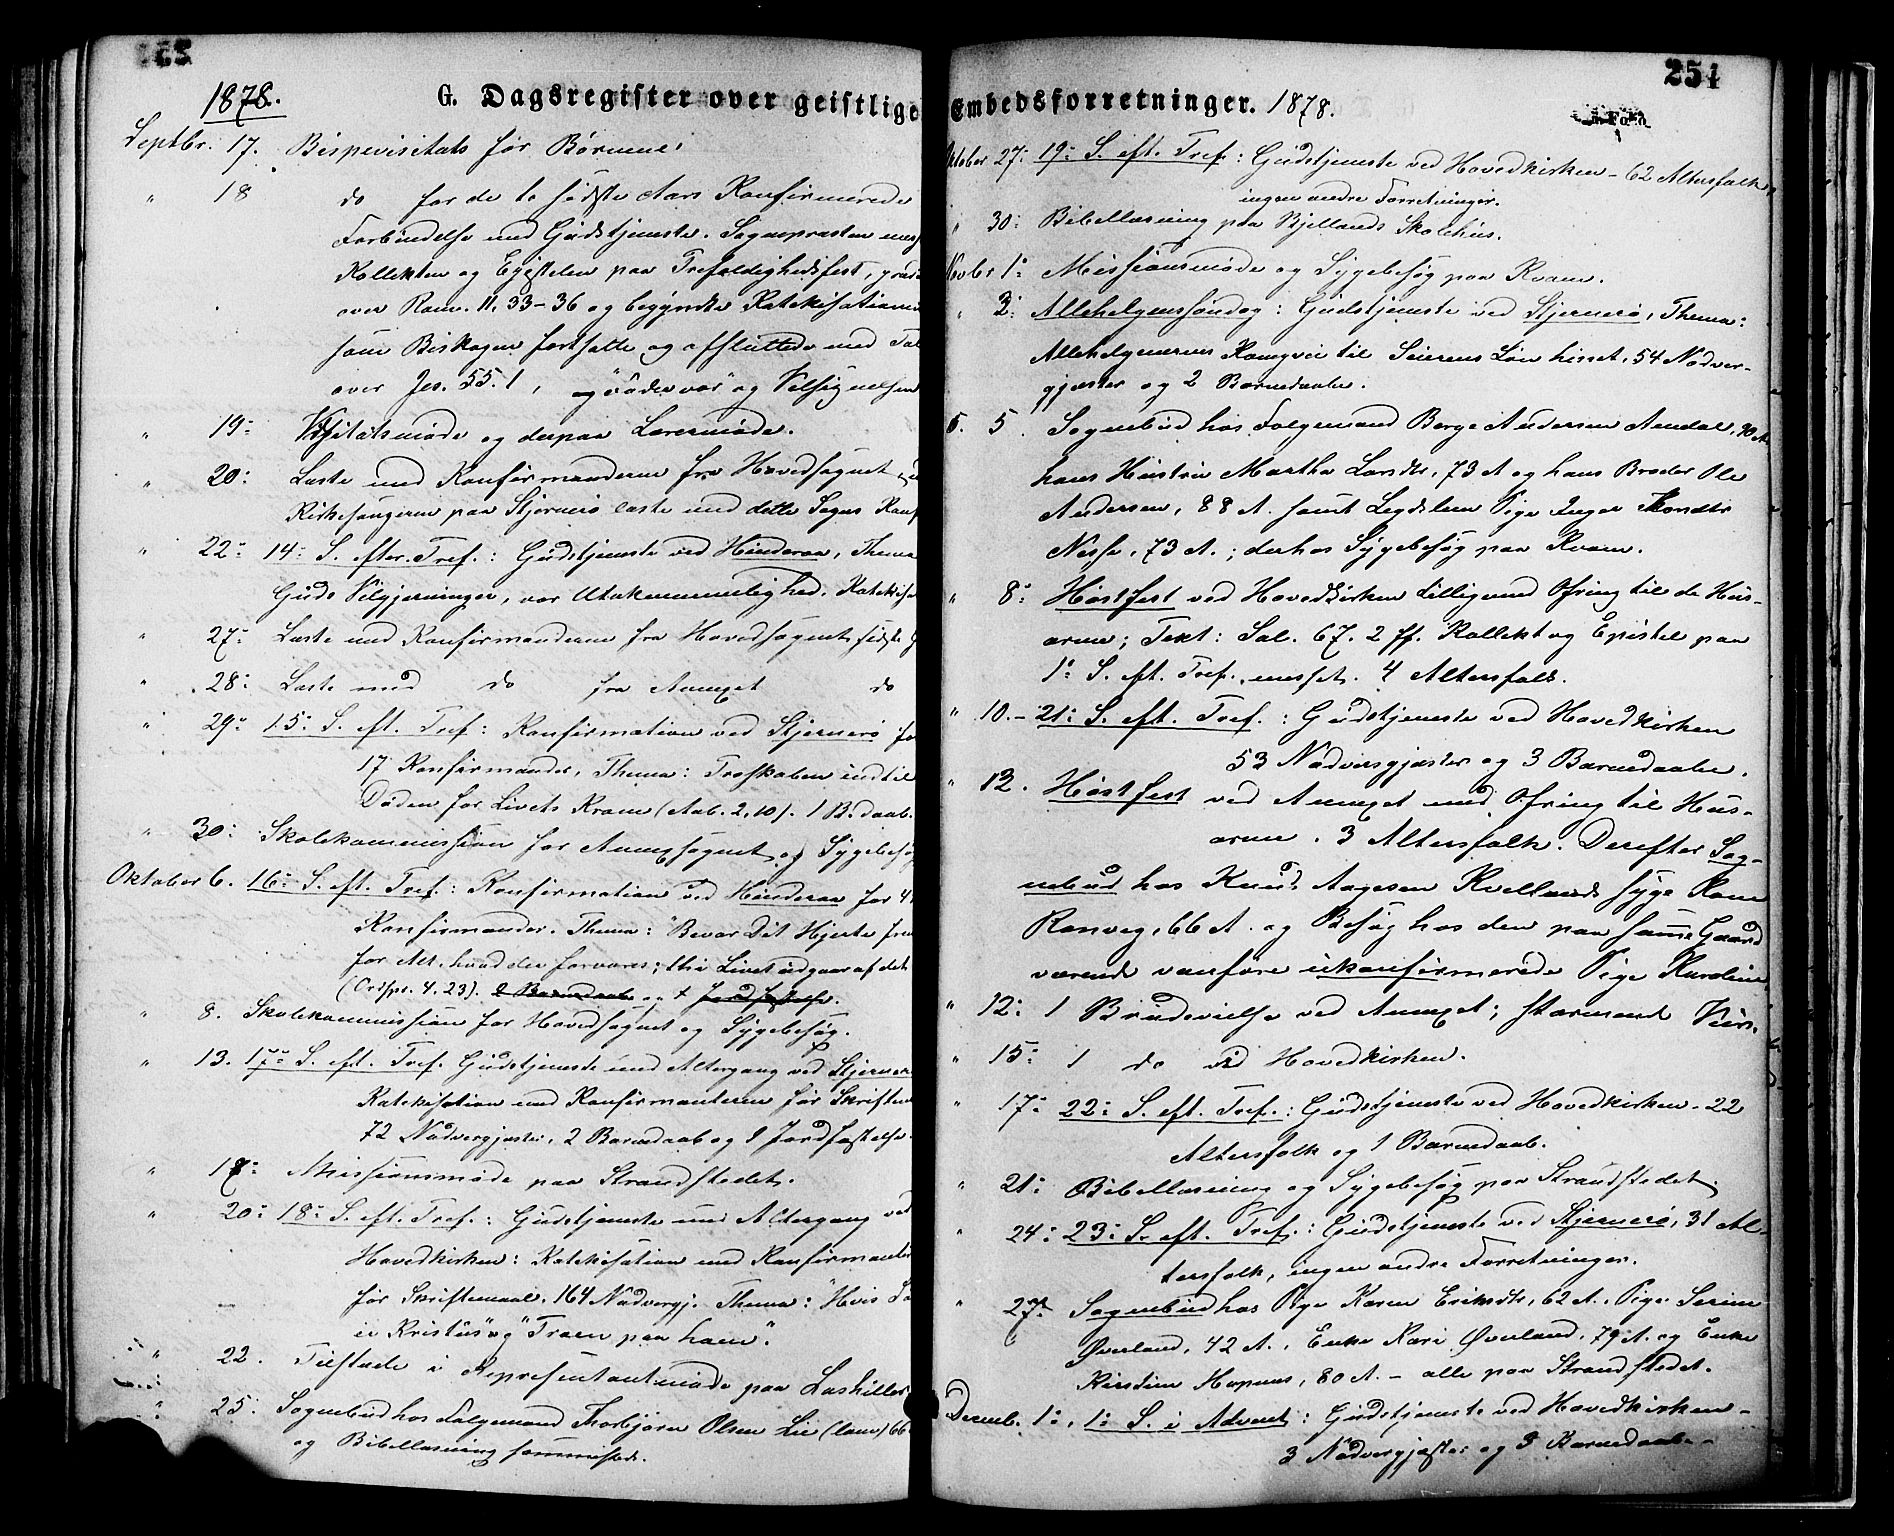 1878.
G. Dagsregister over geistlige
Septbr. 17. Bispevisitats for Børnene.
" 18 do for de to sidste Aars Konfirmerede
Forbindelse med Gudstjeneste. Sognepræsten mess
Kollekten og Epistelen paa Trefoldighedsfest,
over Rom. 11, 33-36 og begyndte Katekisationen
som Biskopen fortsatte og afsluttede med Tal
over Jes. 55. 1, og Velsignelsen
" 19: Visitatsmøde og derpaa Lærermøde.
" 20: Læste med Konfirmanderne fra Hovedsognet,
Kirkesangeren paa Stjernerø læste med dette Sogns Konf
" 22: 14: S. efter Tref.: Gudstjeneste ved Hinderaa, Thema
Guds Velgjerninger, vor Utaknemmelighed. Katekisa
" 27: Læste med Konfirmanderne fra Hovedsognet, sidste G
" 28: Læste med do fra Annexet do
" 29: 15: S. eft. Tref: Konfirmation ved Stjernerø fo
17 Konfirmander, Thema: Troskaben indtil
Døden for Livets Krone (Aab. 2, 10). 1 B.daab.
" 30: Skolekommission for Annexsognet og Sygebesøg
Oktober 6. 16: S. eft. Tref.: Konfirmation ved Hinderaa for 4
Konfirmander. Thema: "Bevar Dit Hjerte frem
for Alt, hvad der forvares; thi Livet udgaar af det
(Ordspr. 4, 23). 2 Barnedaab og 1 Jordfæstelse.
" 8. Skolekommission for Hovedsognet og Sygebesøg.
" 13. 17: S. eft. Tref. Gudstjeneste med Altergang ved Stjerner
Katekisation med Konfirmanterne før Skriften
72 Nadvergjester, 2 Barnedaab og 1 Jordfæstelse.
" 18: Missionsmøde paa Strandstedet.
" 20: 18: S. eft. Tref.: Gudstjeneste med Altergang ved
Hovedkirken: Katekisation med Konfirmanter
før Skriftemaal. 164 Nadvergj. Thema: "Hvis Søn
er Kristus" og "Troen paa ham".
" 22. Tilstede i Repræsentantmøde paa
" 25. Sognebud hos Følgemand Thorbjørn Olsen Lie (lam) 66
og Bibellæsning sammesteds.
254
Embedsforretninger. 1878.
Oktober 27: 19: S. eft. Tref: Gudstjeneste ved Hovedkirken - 62 Altersfolk,
ingen andre Forretninger.
" 30: Bibellæsning paa Bjellands Skolehus.
Novbr 1: Missionsmøde og Sygebesøg paa Kvam.
" 3: Allehelgenssøndag: Gudstjeneste ved Stjernerø, Thema:
Allehelgenernes Kampvei til Seierens Løn hisset, 54 Nadver-
gjæster og 2 Barnedaabe.
5. Sognebud hos Følgemand Børge Andersen Amdal, 70 A.
hans Hustru Martha Larsdtr, 73 A og hans Broder Ole
Andersen, 88 A. samt Legdslem Pige Inger
Nessa, 73 A.; derhos Sygebesøg paa Kvam.
" 8: Høstfest ved Hovedkirken tilligemed Ofring til de Hus-
arme; Text: Sal. 67. 2 ff. Kollekt og Epistel paa
1: S. eft. Tref. messet. 4 Altersfolk.
" 10. - 21: S. eft. Tref.: Gudstjeneste ved Hovedkirken
53 Nadversgjæster og 3 Barnedaabe.
" 12. Høstfest ved Annexet med Ofring til Hus-
arme. 3 Altersfolk. Derefter Sog-
nebud hos Knud Aagesen Kvellands syge Kone
Ranveg, 66 A. og Besøg hos den paa samme Gaard
værende vanføre ukonfirmerede Pige Karoline
" 12: 1 Brudevielse ved Annexet; stormende Veir.
" 15: 1 do ved Hovedkirken.
" 17: 22: S. eft. Tref.: Gudstjeneste ved Hovedkirken - 22
Altersfolk og 1 Barnedaab.
" 21: Bibellæsning og Sygebesøg paa Strandstedet.
" 24: 23: S. eft. Tref.: Gudstjeneste ved Stjernerø, 31 Al-
tersfolk, ingen andre Forretninger.
" 27: Sognebud hos Pige Karen Eriksdtr, 62 A., Pige Serine
Øverland, 42 A., Enke Kari Øverland, 79 A. og Enke
Kirstine Hapnes, 80 A. - alle paa Strandstedet.
Decemb. 1:, 1: S. i Advent: Gudstjeneste ved Hovedkirken -
3 Nadvergjæster og 3 Barnedaabe -